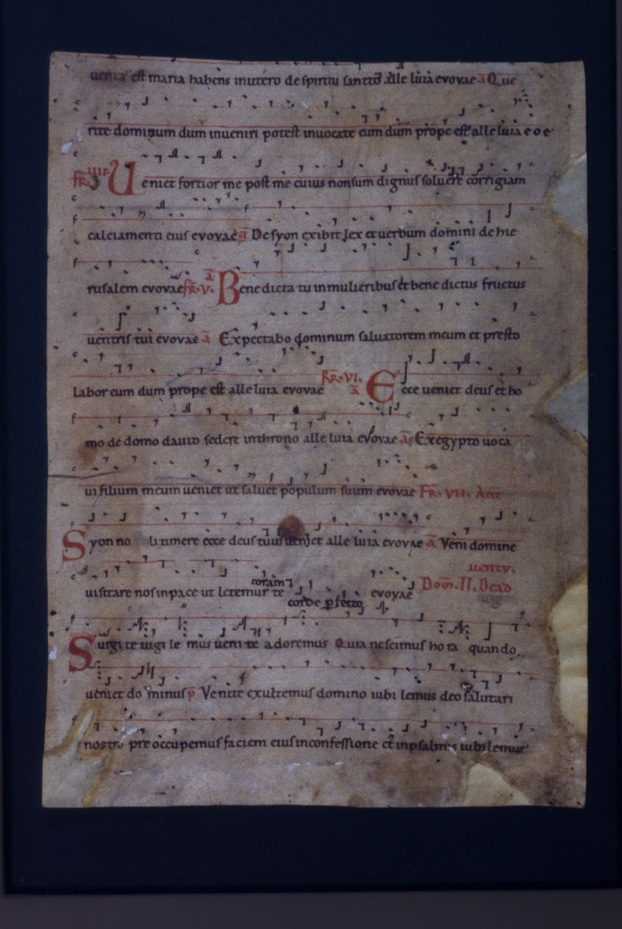 uenta est maria habens inutero de spiritu sancto alle luia evovae a Que
rite dominum dum inueniri potest inuocate eum dum prope est alle luia e o e
fr. iiii. Ueniet fortior me post me cuius nonsum dignus soluere corrigiam
calciamenti eius evovae a De syon exibit lex et uerbum domini de hie
rusalem evovae fr. v. a Bene dicta tu in mulieribus et bene dictus fructus
uentris tui evovae a Expectabo dominum saluatorem meum et presto
labor eum dum prope est alle luia evovae fr. vi. a Ecce ueniet deus et ho
mo de domo dauid sedere inthrono alle luia evovae a Exegypto uoca
ui filium meum ueniet ut saluet populum suum evovae Fr. vii. Ant
Syon no li timere ecce deus tuus ueniet alle luia evovae a Veni domine
uisitare nos inpace ut letemur te coram corde perfecto evovae
uentv.
Dom. II. Dead
Surgi te uigi le mus ueni te adoremus Quia nescimus ho ra quando
ueniet do minus p Venite exultemus domino iubi lemus deo salutari
nostro pre occupemus faciem eius inconfessione et inpsalmis iubilemus